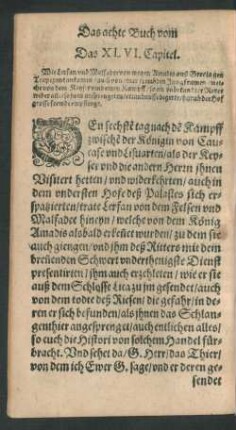 Das achte Buch vom
Das XLVI. Capitel.
Wie Lersan und Malfadee von wegen Amadis und
DEn sechsten tag nach dē Kampff
zwischē der Königin von Cau-
case und Lisuarten / als der Key-
ser und die andern Herrn jhnen
Visitert hetten / und widerkehrten / auch in
dem understen Hofe deß Palastes sich er-
spazierten / trate Lersan von dem Felsen und
Malfadee hineyn / welche von dem König
Amadis alsobald erkeñet wurden / zu dem sie
auch giengen / und jhm deß Ritters mit dem
breñenden Schwert underthenigste Dienst
presentirten / jhm auch erzehleten / wie er sie
auß dem Schlosse Licazu jn gesendet / auch
von dem todte deß Riesen / die gefahr / in de-
ren er sich befunden / als jhnen das Schlan-
genthier angesprenget / auch entlichen alles /
so euch die Histori von solchem Handel für-
bracht. Und sehet da / G. Herr / das Thier /
von dem ich Ewer G. sage / und er deren ge-
sendet